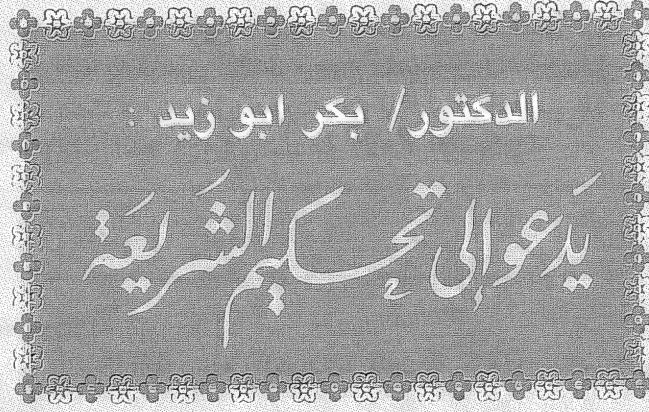 الدكتور/ بكر ابو زيد :
يَدعو إلى تحكيم الشَريعَة